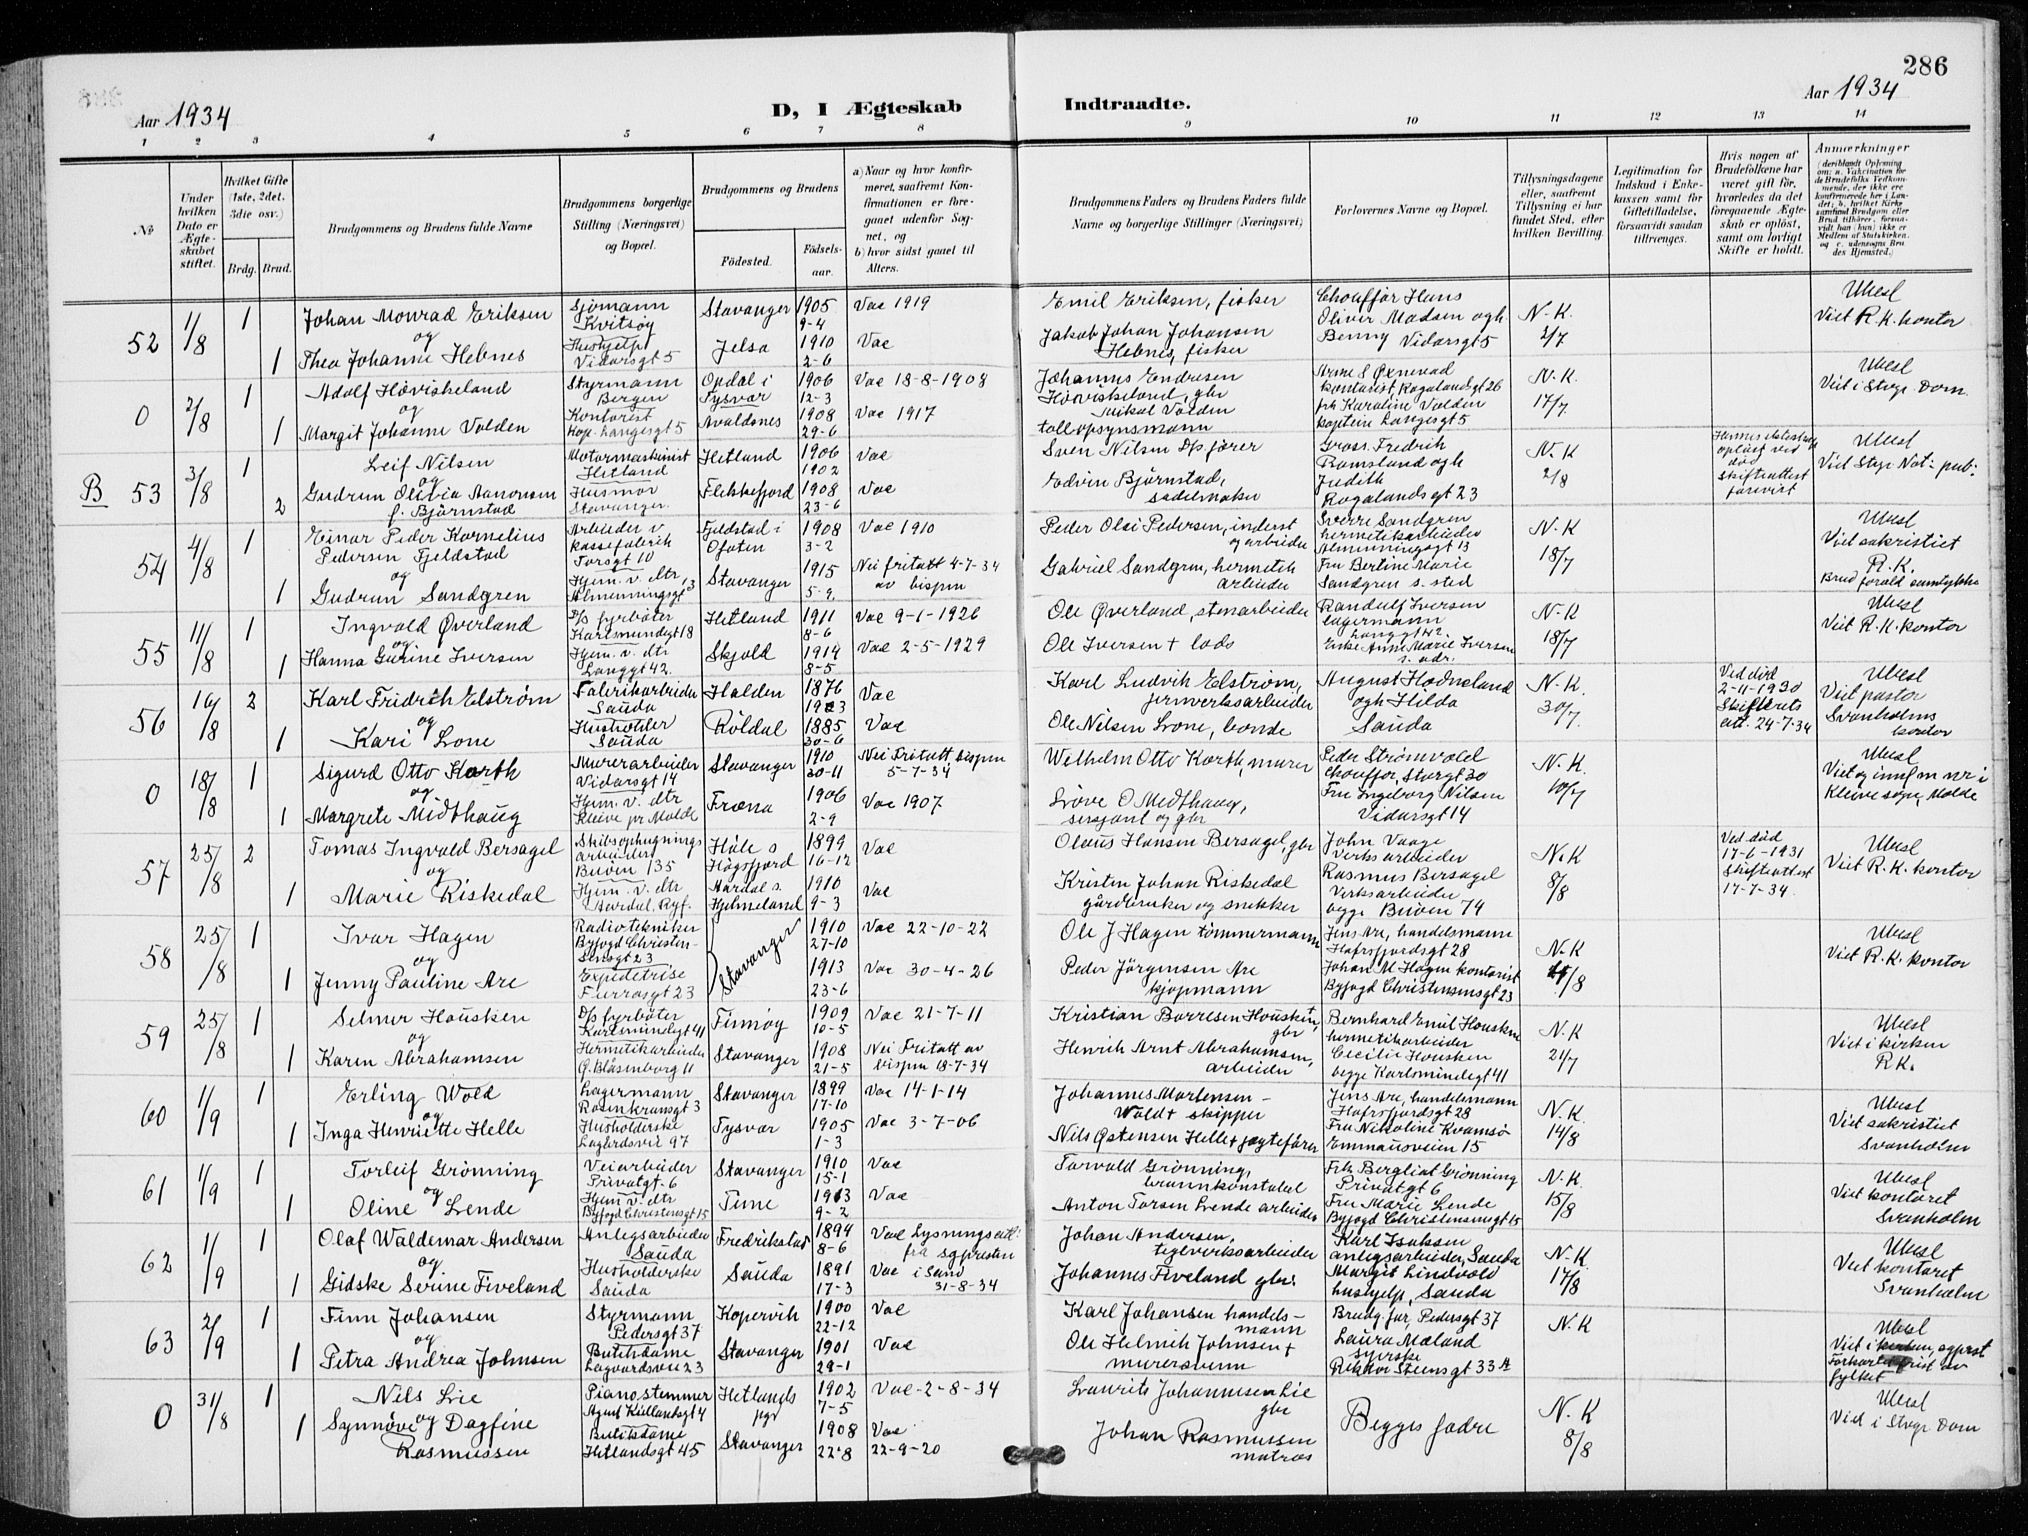 286
Aar 1934
D, I Ægteskab Indtraadte.
Aar 1934
1 2 3 4 5 6 7 8 9 10 11 12 13 14
No
Under hvilken Dato er Ægteskabet stiftet.
Hvilket Gifte (1ste, 2det, 3die osv.)
Brdg. Brud.
Brudgommens og Brudens fulde Navne
Brudgommens borgerlige Stilling (Næringsvei) og Bopæl.
Brudgommens og Brudens
Födested.
Födselsaar.
a) Naar og hvor konfirmeret, saafremt Konfirmationen er foregaaet udenfor Sognet, og
b) hvor sidst gaaet til Alters.
Brudgommens Faders og Brudens Faders fulde Navne og borgerlige Stillinger (Næringsvei)
Forlovernes Navne og Bopæl.
Tillysningsdagene eller, saafremt Tillysning ei har fundet Sted, efter hvilken Bevilling.
Legitimation for Indskud i Enkekassen samt for Giftetilladelse, forsaavidt saadan tiltrænges.
Hvis nogen af Brudefolkene har været gift før, hvorledes da det foregaaende Ægteskab er oplöst, samt om lovligt Skifte er holdt.
Anmerkninger
52 1/8 1 1
Johan Monrad Eriksen
og
Thea Johanne Hebnes
Sjömann
Kvitsøy
Hushjelp
Vidarsgt 5
Stavanger 1905 9-4
Jelsa 1910 2-6
Vac 1919
Vac
Emil Eriksen, fisker
Jakob Johan Johansen
Hebnes, fisker
Chouffør Hans
Oliver Madsen ogh
Benny Vidarsgt 5
N-K.
2/7
Ubesl
Viet R.K. kontor
0 2/8 1 1
Adolf Håviskeland
og
Margit Johanne Valden
Styrmann
Bergen
Kontorist
Kap. Langesgt 5
Opdal i
Tysvær 1906 12-3
Avaldsnes 1908 29-6
Vac 18-8-1908
Vac 1917
Johannes Endresen
Håviskeland, gbr
Mikal Valden
tollopsynsmann
kontorist, Rogalandsgt 26
frk Karoline Valden
kaptein Langesgt 5
N-K.
17/7
Ubesl
Viet i Stvgr. Dom.
B 53 3/8 1 2
Leif Nilsen
og
Gudrun Olivia Aanonsen
f. Bjørnstad
Motormaskinist
Hetland
Husmor
Stavanger.
Hetland 1906
Flekkefjord 1908 23-6
Vac
Vac
Sven Nilsen D/s fører
Edvin Bjørnstad,
sadelmaker
Gross. Fredrik
Ramsland ogh
Judith
Rogalandsgt 23
N-K
2/8
Ubesl
Viet Stvgr Not- pub-
54 4/8 1 1
Einar Peder Kornelius
Pedersen Fjeldstad
og
Gudrun Sandgren
Arbeider v
kassefabrik
Torsgt 10
Hjem. v. dtr
Almenningsgt 13
Fjeldstad i
Ofoten 1908 3-2
Stavanger 1915 5-9
Vac 1910
Nei fritatt 4-7-34
av bispen
Peder Olai Pedersen, inderst
og arbeider
Gabriel Sandgren, hermetik
arbeider
Sverre Sandgren
hermetikarbeider
Almenningsgt 13
Fru Bertine Marie
Sandgren s. sted
N-K
18/7
Ubesl
Viet sakristiet
R.K.
Brud foreld samtykke
55 11/8 1 1
Ingvald Øverland
og
Hanna Gurine Iversen
D/s fyrbøter
Karlsmundgt 18
Hjem. v. dtr
Langgt 42.
Hetland 1911 8-6
Skjold 1914 8-5
Vac 9-1-1926
Vac 2-5-1929
Ole Øverland, stenarbeider
Ole Iversen + lods
Randulf Iversen
lagermann
Langgt 42
Enke Anne Marie Iversen
s. adr.
N-K
18/7
Ubesl
Viet R.K. kontor
56 2 1
Karl Fridrik Elstrøm
og
Kari Lone
Fabrikarbeider
Sauda
Husholder
Sauda
Halden 1876
Röldal 1885 30-6
Vac
Vac
Karl Ludvik Elstrøm,
jernverksarbeider
Ole Nilsen Lone, bonde
August Hodneland
ogh Hilda
Sauda
N-K.
30/7.
Ved död
2-11-1930
Skifterets
att. 24-7-34
Ubesl
Viet pastor
Svanholms
kontor
0 18/8 1 1
Sigurd Otto Korth
og
Margrete Midthaug
Murerarbeider
Vidarsgt 14
Hjem. v. dtr
Kleive pr Molde
Stavanger 1910 30-11
Fræna 1906 2-9
Nei Fritatt, bispen
5-7-34
Vac 1907
Wilhelm Otto Korth, murer
O Midthaug,
sersjant og gbr
Peder Strømvold
chouffør, Storgt 30
Fru Ingeborg Nilsen
Vidarsgt 14
N-K.
10/7
Ubesl
Kleive sogn, Molde
57 25/8 2 1
Tomas Ingvald Bersagel
og
Marie Riskedal
Skibsophugnings
arbeider
Buøen 135
Hjem. v. dtr
Aardal, Ryf.
Håle s
Högsfjord 1899 16-12
Aardal s.
Hjelmeland 1910 9-3
Vac
Vac
Olaus Hansen Bersagel, gbr
Kristen Johan Riskedal
gårdbruker og snekker
John Vaage
verksarbeider
Rasmus Bersagel
verksarbeider
begge Buøen 74
N-K
8/8
Ved död
17-6-1931
Skifteattest
17-7-34.
Ubesl
Viet R.K. kontor
58 25/8 1 1
Ivar Hagen
og
Jenny Pauline Are
Radiotekniker
Byfogd Christen-
sensgt 23
Expeditrise
Furrasgt 23
Stavanger
1910 27-10
1913 23-6
Vac 22-10-22
Vac 30-4-26
Ole J Hagen tömmermann
Peder Jörgensen Are
kjøpmann
Jens Are, handelsmann
Hafrsfjordsgt 28
Johan M Hagen kontorist
Byfogd Christensensgt 23
N-K
/8
Ubesl
Viet R.K. kontor
59 25/8 1 1
Selmer Housken
og
Karen Abrahamsen
D/s fyrbøter
Karlsmindegt 41
Hermetikarbeider
Ø. Blåsenborg 11
Finnøy 1909 10-5
Stavanger 1908 21-5
Vac 21-7-11
Nei Fritatt av
bispen 18-7-34
Kristian Borresen Housken,
gbr
Henrik Arnt Abrahamsen,
arbeider
Bernhard Emil Housken
hermetikarbeider
Cecilie Housken
begge Karlsmindegt 41
N-K
24/7
Ubesl
Viet i kirken
R.K.
60 1/9 1 1
Erling Wold
og
Inga Henriette Helle
Lagermann
Rosenkransgt 3
Husholderske
Lagårdsvei 97
Stavanger 1899 17-10
Tysvær 1905 1-3
Vac 14-1-14
Vac 3-7-06
Johannes Martensen-
Wold + skipper
Nils Østensen Helle + jægtefører
Jens Are, handelsmann
Hafrsfjordsgt 28
Fru Nikoline Kvamsø
Emmausveien 15
N-K.
14/8
Ubesl
Viet sakristiet
Svanholm
61 1/9 1 1
Torleif Grönning
og
Oline Lende
Veiarbeider
Privatgt-6
Hjem. v. dtr
Byfogd Christensgt 15
Stavanger 1910 15-1
Time 1913 9-2
Vac
Vac
Torvald Grønning,
brannkonstabel
Anton Torsen Lende arbeider
Frk Bergliot Grønning
Privatgt 6
Fru Marie Lende
Byfogd Christensensgt 15
N-K.
15/8
Ubesl
Viet kontoret
Svanholm
62 1/9 1 1
Olaf Waldemar Andersen
og
Gidske Serine Fiveland
Anlegsarbeider
Sauda
Husholderske
Sauda
Fredrikstad 1894 8-6
Sauda 1891 17-3
Vac Lysningsatt:
fra sgpresten
Vac i Sand
31-8-34
Johan Andersen,
teglverksarbeider
Johannes Fiveland gbr.
Karl Isaksen
anlegsarbeider, Sauda
Margit Lindvold
hushjelp, Sauda
N-K.
17/8
Ubesl
Viet kontoret
Svanholm
63 2/9 1 1
Finn Johansen
og
Petra Andrea Johnsen
Styrmann
Pedersgt 37
Butikdame
Lagaardsvei 23
Kopervik 1900 22-12
Stavanger 1901 29-1
Vac
Vac
Karl Johansen handels-
mann
Ole Helmik Johnsen +
murersvenn
Brudg. far, Pedersgt 37
Laura Mæland
syerske
Rektor Steensgt 33 A
N-K
Ubesl
Viet i kirken, sgprst
Forkortet frist av
fylket
0 31/8 1 1
Nils Lie
og
Synnøve Dagfine
Rasmussen
Pianostemmer
Agent Kiellandsgt 4
Butikdame
Hetlandsgt 45
Hetlands
pgr 1902 7-5
Stavanger 1908 22-8
Vac-2-8-34
Vac
22-9-20
Laurits Johannesen Lie
gbr
Johan Rasmussen
matros
Begges fedre
N-K
8/8
Ubesl
Viet i Stvgr Dom